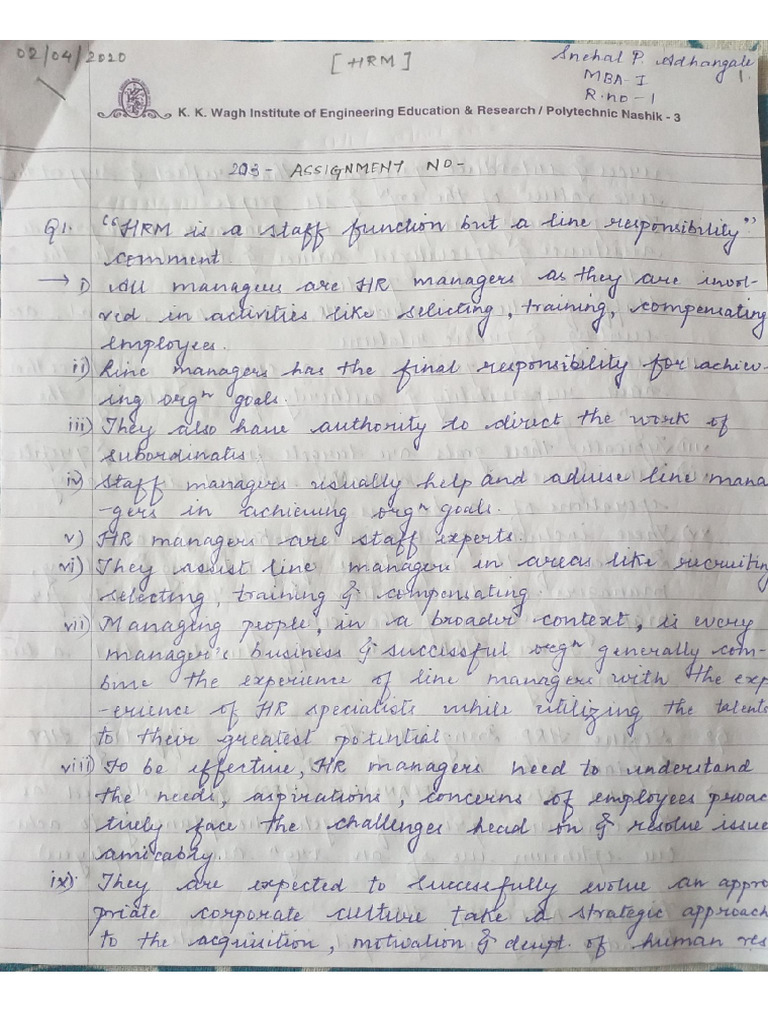 02/04/2020
[HRM]
Snehal P. Adhangale
MBA-I
1.
R.no-1
K. K. Wagh Institute of Engineering Education & Research / Polytechnic Nashik - 3
203- ASSIGNMENT NO-
Q1. "HRM is a staff function but a line responsibility"
comment.
→ i) All managers are HR managers as they are invol-
ved in activities like selecting, training, compensating
employees.
ii) Line managers has the final responsibility for achiev-
ing orgⁿ goals.
iii) They also have authority to direct the work of
subordinates.
iv) Staff managers usually help and advise line mana
-gers in achieving orgⁿ goals.
v) HR managers are staff experts.
vi) They assist line managers in areas like recruiting
selecting, training & compensating.
vii) Managing people, in a broader context, is every
manager's business & successful orgⁿ generally com-
bine the experience of line managers with the exp
-erience of HR specialists while utilizing the talents
to their greatest potential.
viii) To be effective, HR managers need to understand
the needs, aspirations, concerns of employees proac
tively face the challenges head on & resolve issue
amicably.
ix) They are expected to successfully evolve an appro
priate corporate culture take a strategic approach
to the acquisition, motivation & devpt. of human res